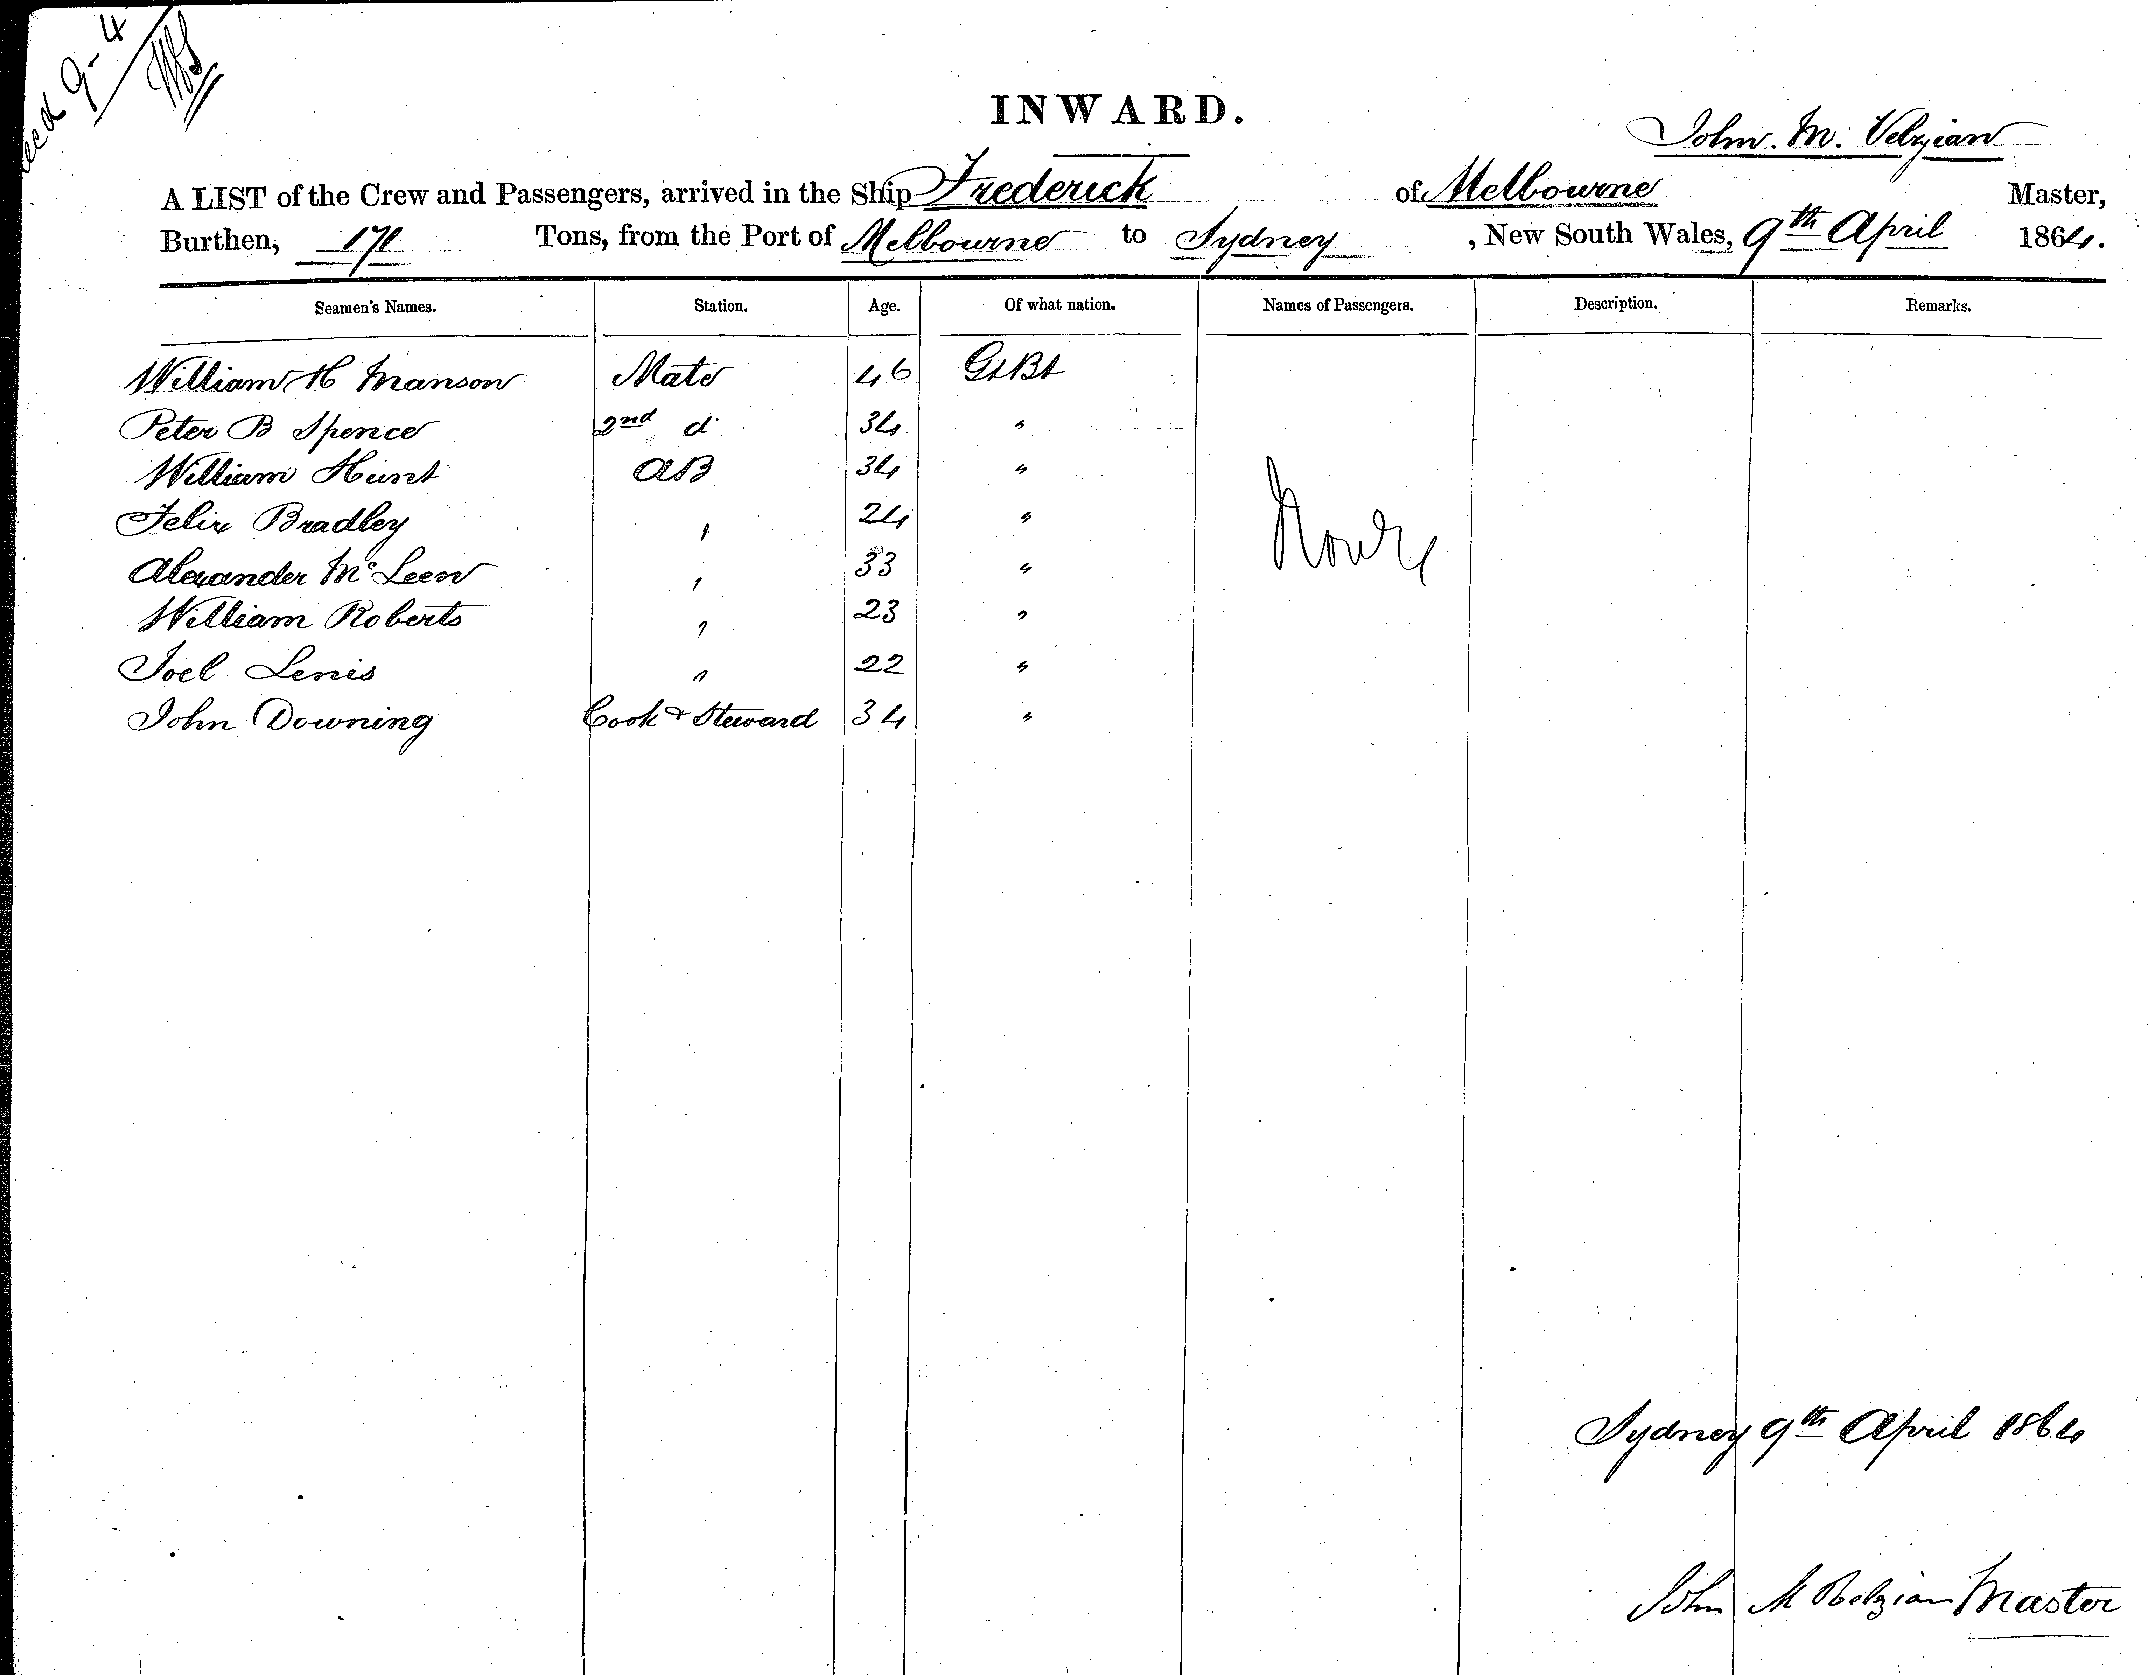 9-4
INWARD.
John. M. Velzian
A LIST of the Crew and Passengers, arrived in the Ship Frederick of Melbourne Master,
Burthen, 171 Tons, from the Port of Melbourne to Sydney, New South Wales, 9th April 1864.
Seamen's Names. Station. Age. Of what nation. Names of Passengers. Description. Remarks.
William H Manson Mate 46 Gt Bt
Peter B Spence 2nd d 34 "
William Hunt AB 34 "
Felix Bradley " 24 "
None
Alexander McLeen " 33 "
William Roberts " 23 "
Joel Lenis " 22 "
John Downing Cook & Steward 34 "
Sydney 9th April 1864
John M Velzian Master